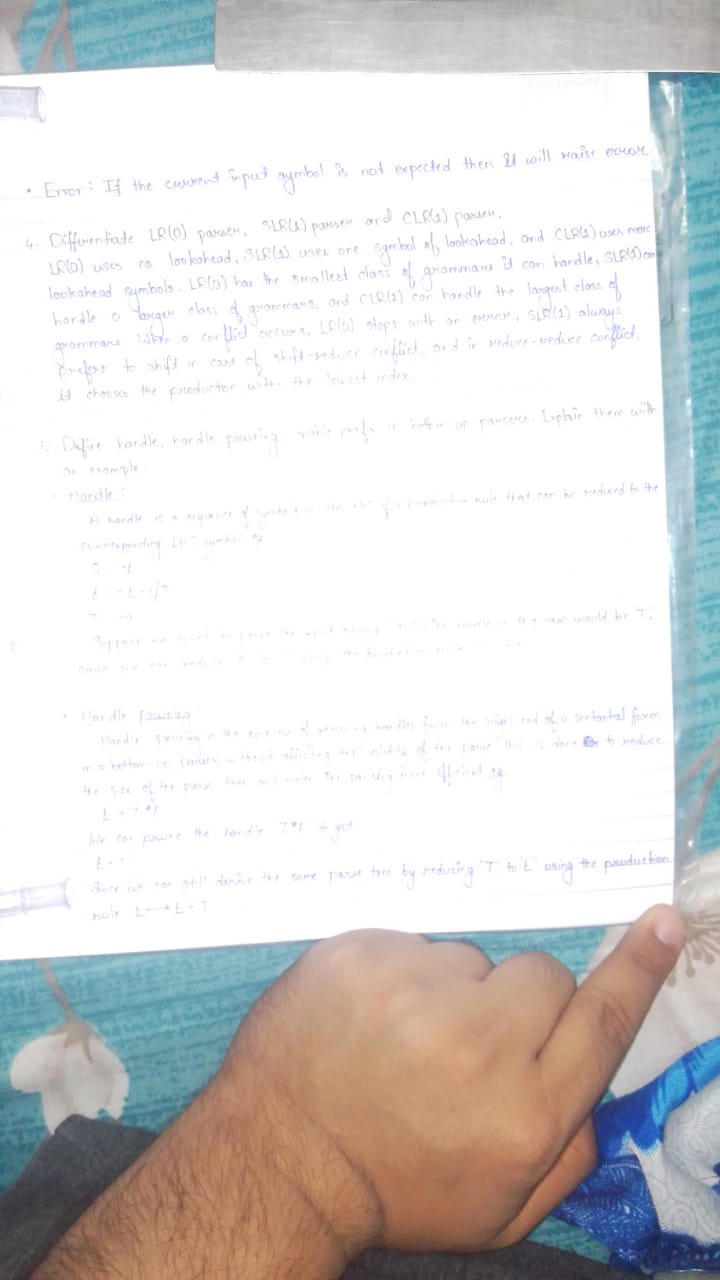 • Error : If the current input symbol is not expected then it will raise error
4. Differentiate LR(0) parser, SLR(1) parser and CLR(1) parser.
LR(0) uses no lookahead, SLR(1) uses one symbol of lookahead, and CLR(1) uses more
lookahead symbols. LR(0) has the smallest class of grammars it can handle, SLR(1) can
handle a larger class of grammars, and CLR(1) can handle the largest class of
grammars. When a conflict occurs, LR(0) stops with an error, SLR(1) always
prefers to shift in case of shift-reduce conflict, and in reduce-reduce conflict,
it chooses the production with the lowest index.
5. Define handle, handle pruning, viable prefix in bottom up parsers. Explain them with
an example.
• Handle :
A handle is a sequence of symbols on the RHS of a production rule that can be reduced to the
corresponding LHS symbol eg
Suppose we want to parse the input string the handle in this case would be T;
since we can reduce to using the
• Handle pruning
Handle pruning is the process of removing handles from the right end of a sentential form
in a bottom-up parser, without affecting the validity of the parse This is done to reduce
the size of the parse tree and make the parsing more efficient eg
E + T *F
We can prune the handle T*F to get
E + T
Since we can still derive the same parse tree by reducing 'T' to 'E' using the production
rule E → E + T